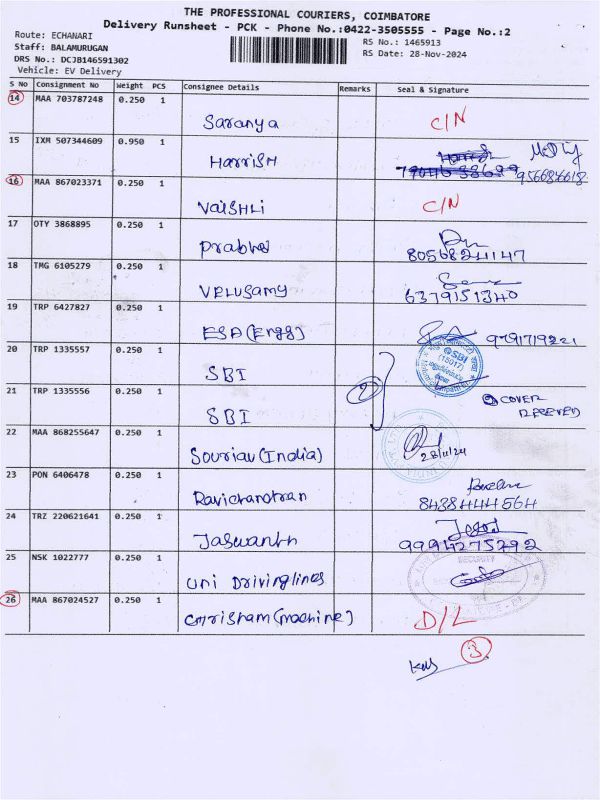 THE PROFESSIONAL COURIERS, COIMBATORE
Delivery Runsheet - PCK - Phone No.:0422-3505555 - Page No.:2
Route: ECHANARI
RS No.: 1465913
Staff: BALAMURUGAN
RS Date: 28-Nov-2024
DRS No.: DCJB146591302
Vehicle: EV Delivery
S No Consignment No Weight PCS Consignee Details Remarks Seal & Signature
14 MAA 703787248 0.250 1 Saranya C/N
15 IXM 507344609 0.950 1 HARRISH
16 MAA 867023371 0.250 1 VAISHLI C/N
17 OTY 3868895 0.250 1 Prabhu 80568241147
18 TMG 6105279 0.250 1 VELUSAMY 6379151340
19 TRP 6427827 0.250 1 ESA (Engg) 9791719221
20 TRP 1335557 0.250 1 SBI
SBI
(15017)
2
21 TRP 1335556 0.250 1 SBI 2 COVER
RECEVED
22 MAA 868255647 0.250 1 Souriau (India) 28/11/24
23 PON 6406478 0.250 1 Ravichandran 8438444564
24 TRZ 220621641 0.250 1 Jaswanth 9994275292
25 NSK 1022777 0.250 1 Uni Drivinglines
SECURITY
26 MAA 867024527 0.250 1 D/L
3